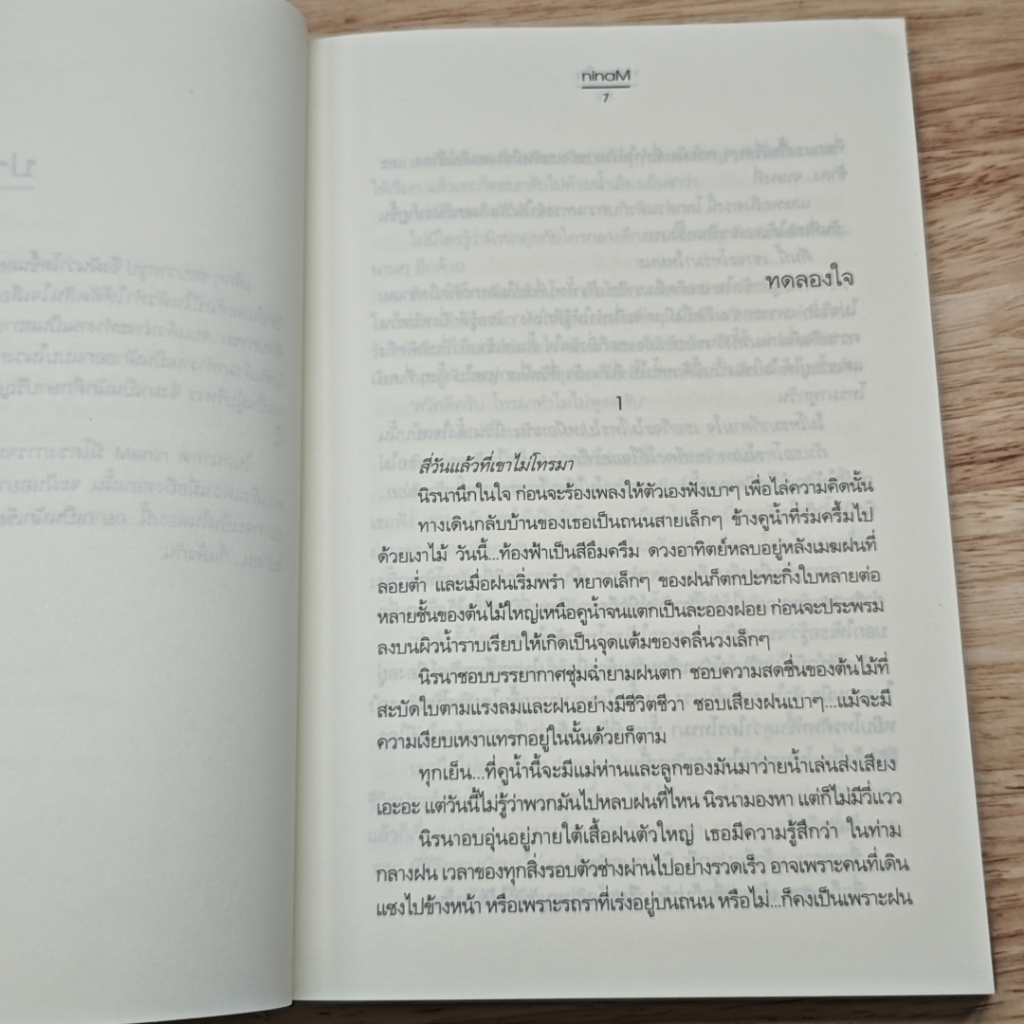 ninaM
7
ทดลองใจ
1
สี่วันแล้วที่เขาไม่โทรมา
นิรนานึกในใจ ก่อนจะร้องเพลงให้ตัวเองฟังเบาๆ เพื่อไล่ความคิดนั้น
ทางเดินกลับบ้านของเธอเป็นถนนสายเล็กๆ ข้างคูน้ำที่ร่มครึ้มไป
ด้วยเงาไม้ วันนี้...ท้องฟ้าเป็นสีอึมครึม ดวงอาทิตย์หลบอยู่หลังเมฆฝนที่
ลอยต่ำ และเมื่อฝนเริ่มพรำ หยาดเล็กๆ ของฝนก็ตกปะทะกิ่งใบหลายต่อ
หลายชั้นของต้นไม้ใหญ่เหนือคูน้ำจนแตกเป็นละอองฝอย ก่อนจะประพรม
ลงบนผิวน้ำราบเรียบให้เกิดเป็นจุดแต้มของคลื่นวงเล็กๆ
นิรนาชอบบรรยากาศชุ่มฉ่ำยามฝนตก ชอบความสดชื่นของต้นไม้ที่
สะบัดใบตามแรงลมและฝนอย่างมีชีวิตชีวา ชอบเสียงฝนเบาๆ...แม้จะมี
ความเงียบเหงาแทรกอยู่ในนั้นด้วยก็ตาม
ทุกเย็น...ที่คูน้ำนี้จะมีแม่ห่านและลูกของมันมาว่ายน้ำเล่นส่งเสียง
เอะอะ แต่วันนี้ไม่รู้ว่าพวกมันไปหลบฝนที่ไหน นิรนามองหา แต่ก็ไม่มีวี่แวว
นิรนาอบอุ่นอยู่ภายใต้เสื้อฝนตัวใหญ่ เธอมีความรู้สึกว่า ในท่าม
กลางฝน เวลาของทุกสิ่งรอบตัวช่างผ่านไปอย่างรวดเร็ว อาจเพราะคนที่เดิน
แซงไปข้างหน้า หรือเพราะรถราที่เร่งอยู่บนถนน หรือไม่...ก็คงเป็นเพราะฝน